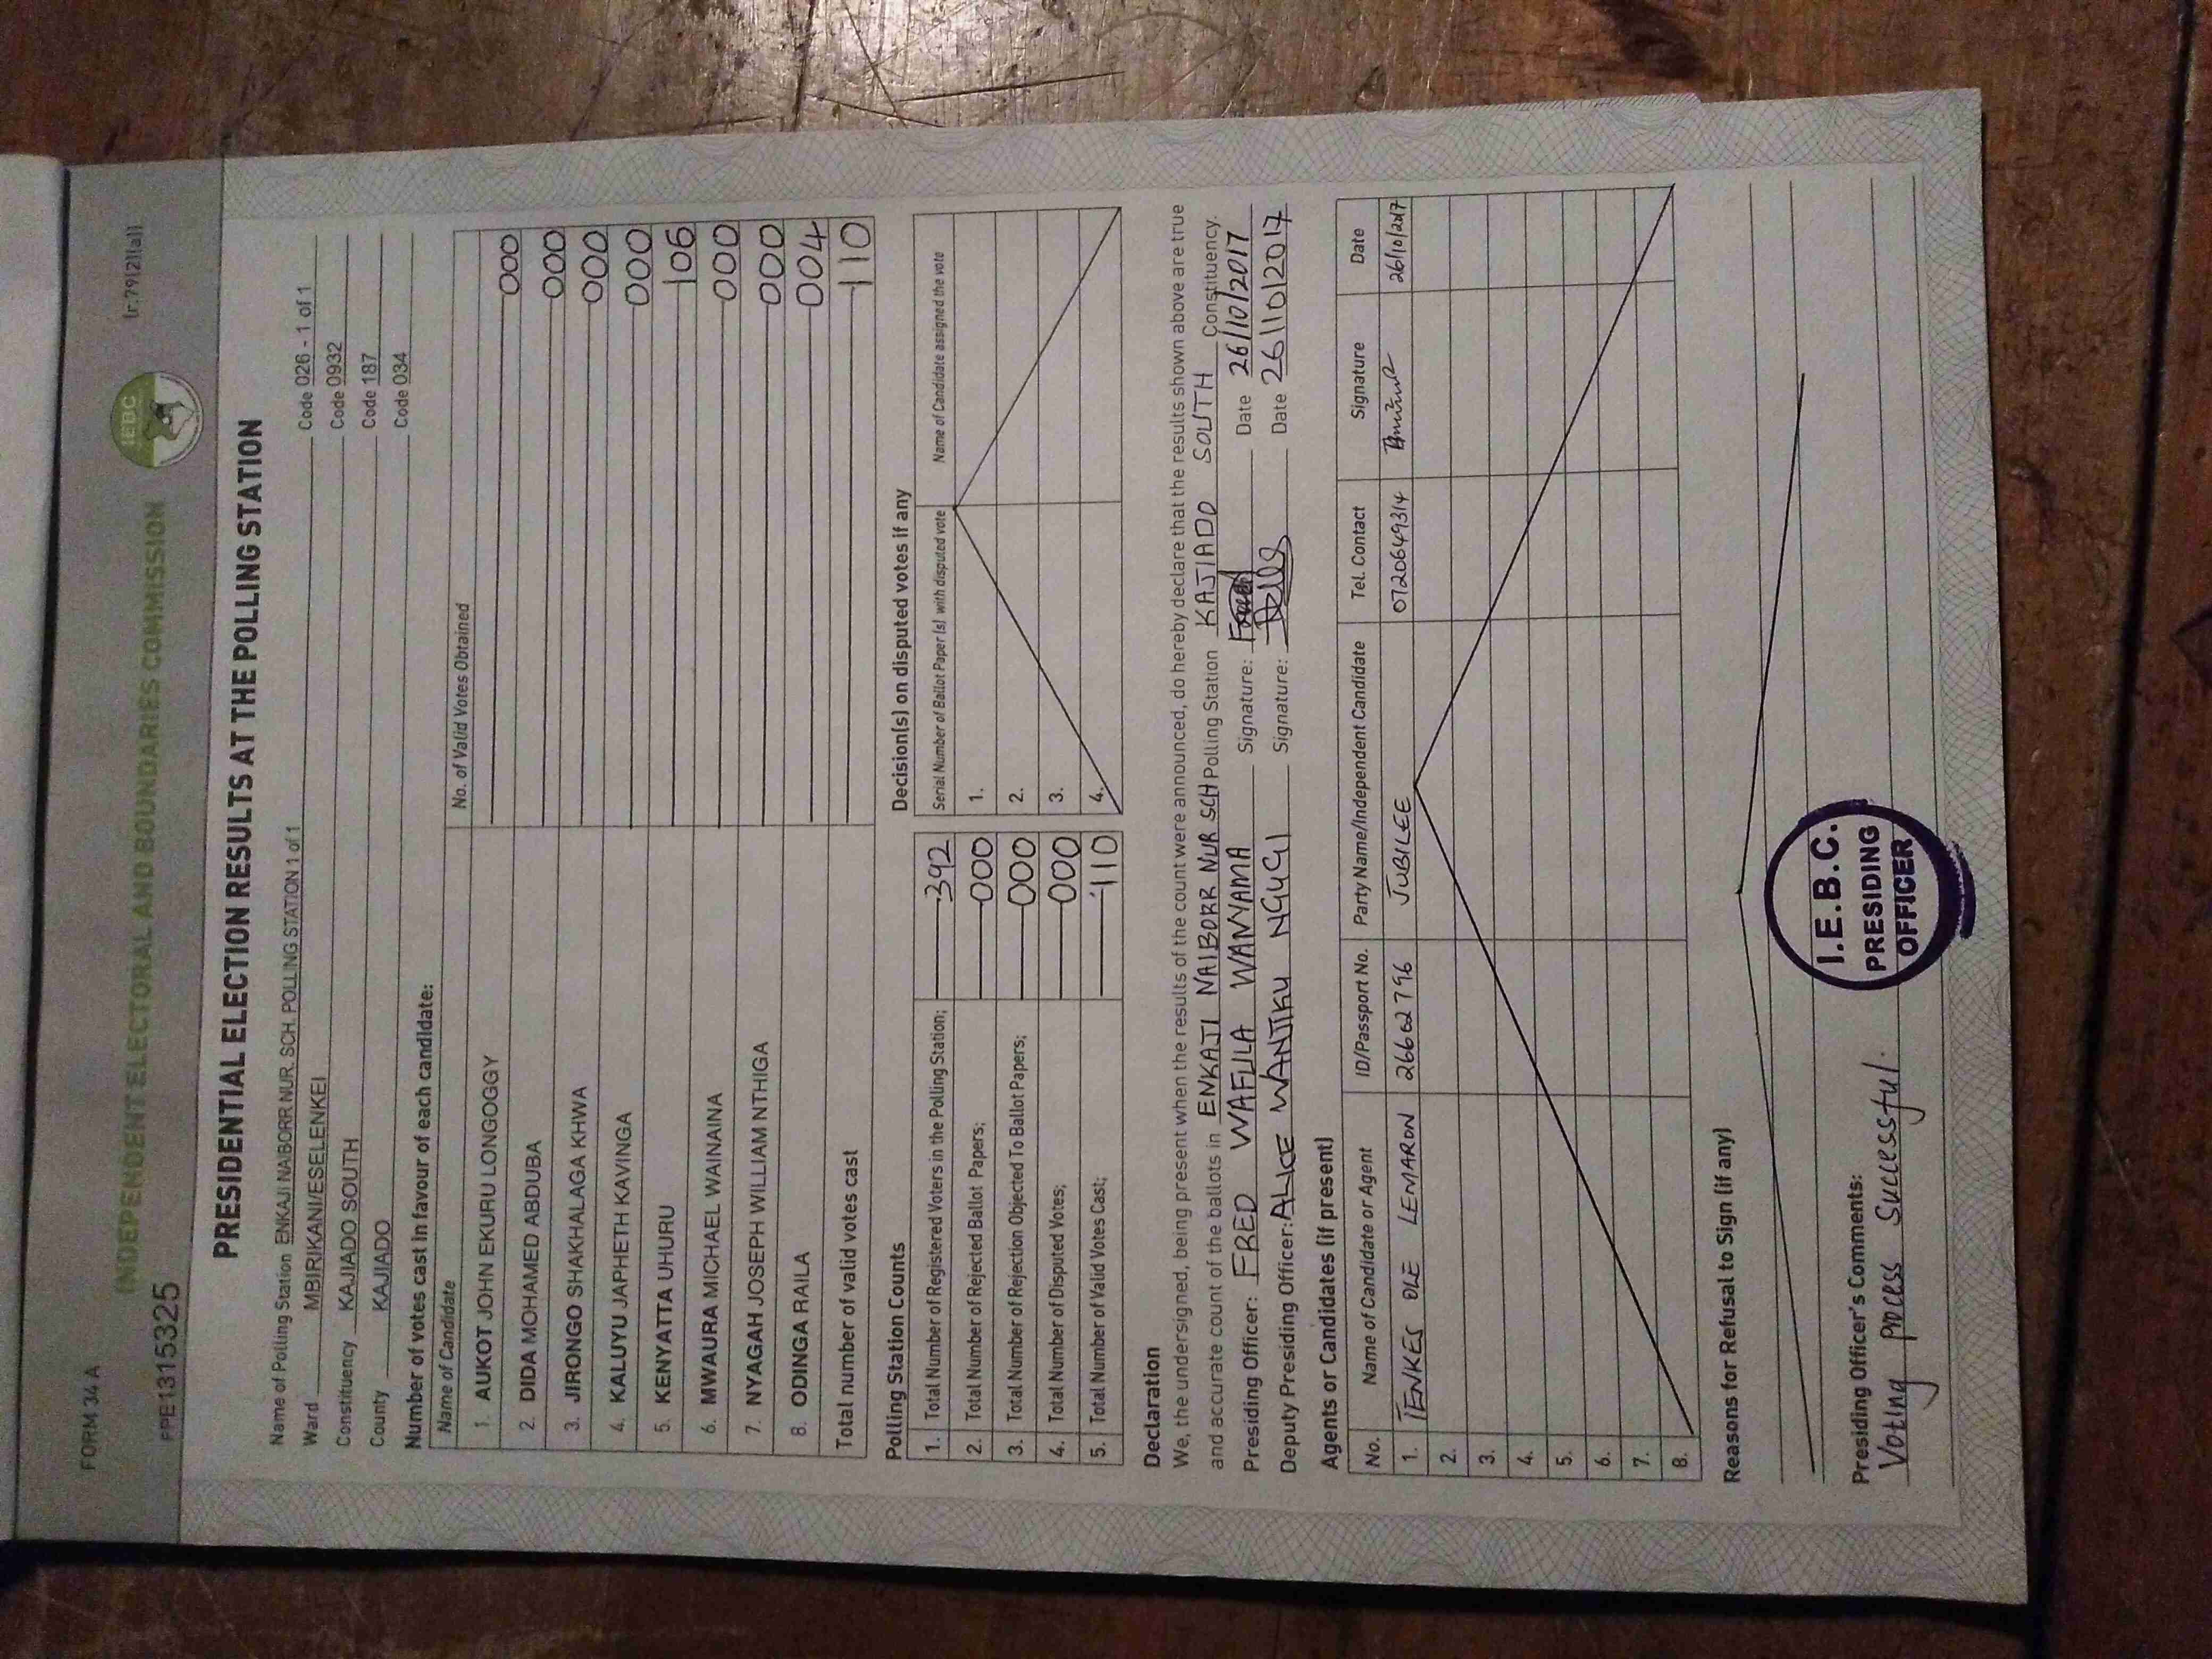 FORM 34 A
(r.79(2)(a))
INDEPENDENT ELECTORAL AND BOUNDARIES COMMISSION
IEBC
FPE1315325
PRESIDENTIAL ELECTION RESULTS AT THE POLLING STATION
Name of Polling Station ENKAJI NAIBORR NUR. SCH. POLLING STATION 1 of 1 Code 026 - 1 of 1
Ward MBIRIKANI/ESELENKEI Code 0932
Constituency KAJIADO SOUTH Code 187
County KAJIADO Code 034
Number of votes cast in favour of each candidate:
Name of Candidate No. of Valid Votes Obtained
1. AUKOT JOHN EKURU LONGOGGY 000
2. DIDA MOHAMED ABDUBA 000
3. JIRONGO SHAKHALAGA KHWA 000
4. KALUYU JAPHETH KAVINGA 000
5. KENYATTA UHURU 106
6. MWAURA MICHAEL WAINAINA 000
7. NYAGAH JOSEPH WILLIAM NTHIGA 000
8. ODINGA RAILA 004
Total number of valid votes cast 110
Polling Station Counts
1. Total Number of Registered Voters in the Polling Station; 392
2. Total Number of Rejected Ballot Papers; 000
3. Total Number of Rejection Objected To Ballot Papers; 000
4. Total Number of Disputed Votes; 000
5. Total Number of Valid Votes Cast; 110
Decision(s) on disputed votes if any
Serial Number of Ballot Paper(s) with disputed vote Name of Candidate assigned the vote
1.
2.
3.
4.
Declaration
We, the undersigned, being present when the results of the count were announced, do hereby declare that the results shown above are true
and accurate count of the ballots in ENKAJI NAIBORR NUR SCH Polling Station KAJIADO SOUTH Constituency.
Presiding Officer: FRED WAFULA WANYAMA Signature: Date 26/10/2017
Deputy Presiding Officer: ALICE WANJIKU NGUGI Signature: Date 26/10/2017
Agents or Candidates (if present)
No. Name of Candidate or Agent ID/Passport No. Party Name/Independent Candidate Tel. Contact Signature Date
1. TENKES OLE LEMARON 26662796 JUBILEE 0720649314 26/10/2017
2.
3.
4.
5.
6.
7.
8.
Reasons for Refusal to Sign (if any)
Presiding Officer's Comments:
Voting process successful.
I.E.B.C.
PRESIDING
OFFICER